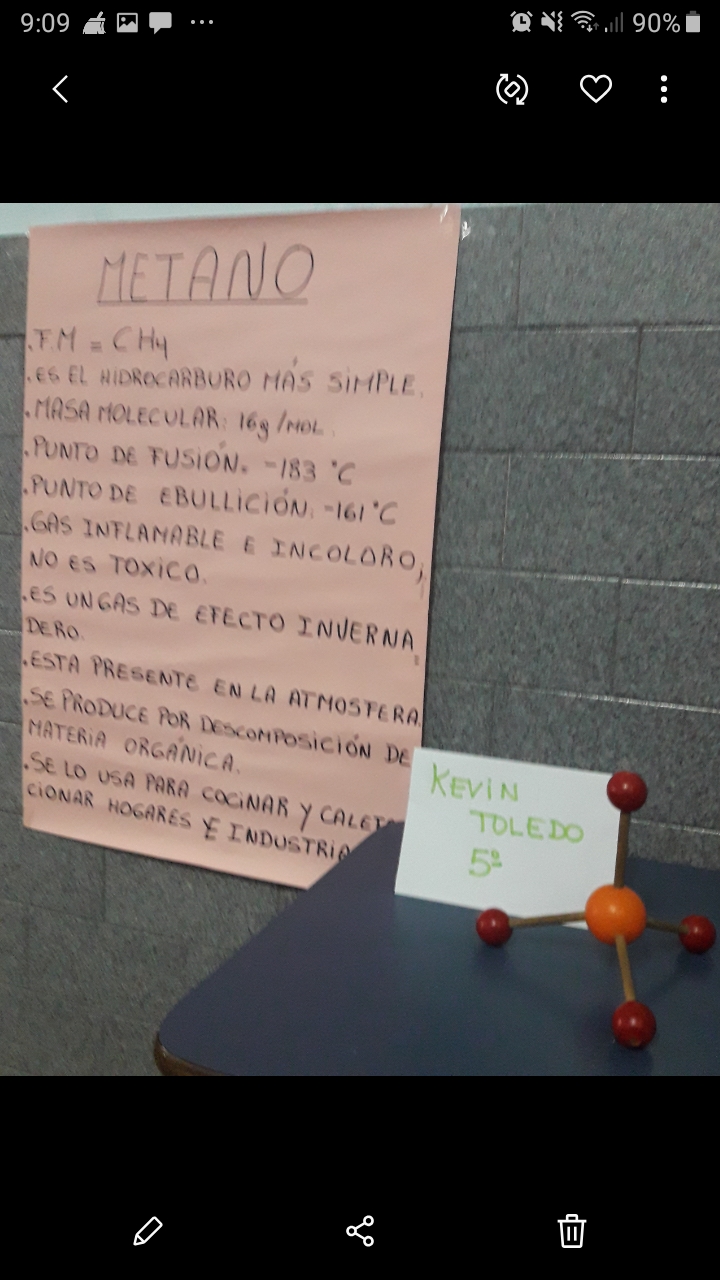 9:09
90%
METANO
.F.M = CH4
.ES EL HIDROCARBURO MÁS SIMPLE.
.MASA MOLECULAR: 16g/MOL.
.PUNTO DE FUSIÓN. -183 °C
.PUNTO DE EBULLICIÓN: -161°C
.GAS INFLAMABLE E INCOLORO,
NO ES TOXICO.
.ES UN GAS DE EFECTO INVERNA
DERO.
.ESTA PRESENTE EN LA ATMOSFERA.
.SE PRODUCE POR DESCOMPOSICIÓN DE
MATERIA ORGÁNICA.
.SE LO USA PARA COCINAR Y CALEFA
CIONAR HOGARES Y E INDUSTRIA
KEVIN
TOLEDO
5º